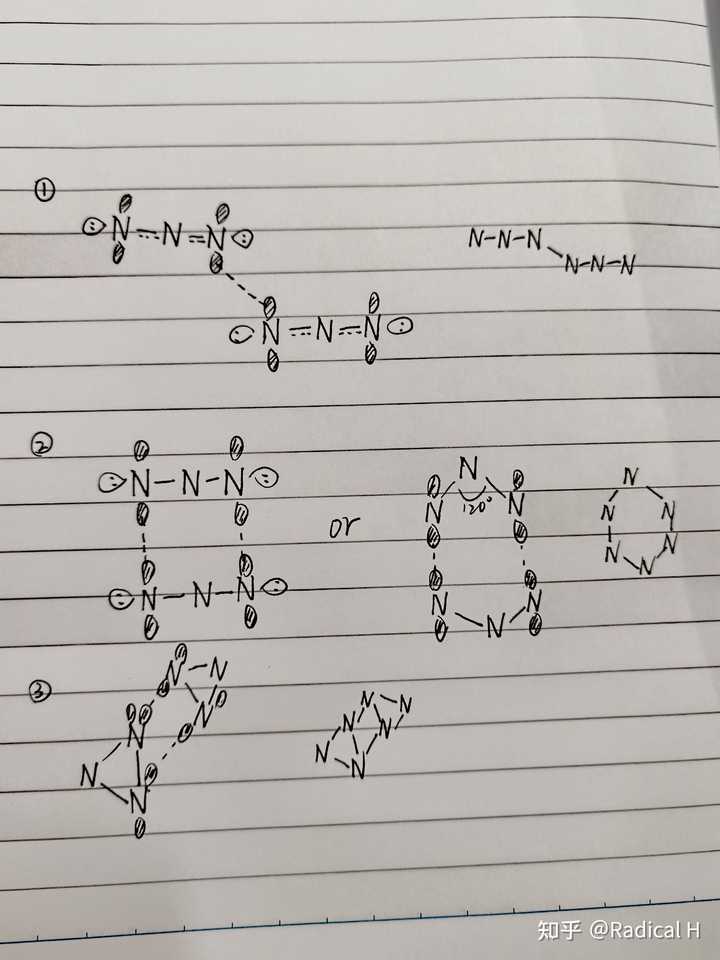 ①
N=N=N
N-N-N
N-N-N
N=N=N
②
N-N-N
or
N
N N
120°
N
N N
N N
N N
N-N-N
N N
N
③
N-N
N
N
N
N
N N
N N
N N
知乎 @Radical H